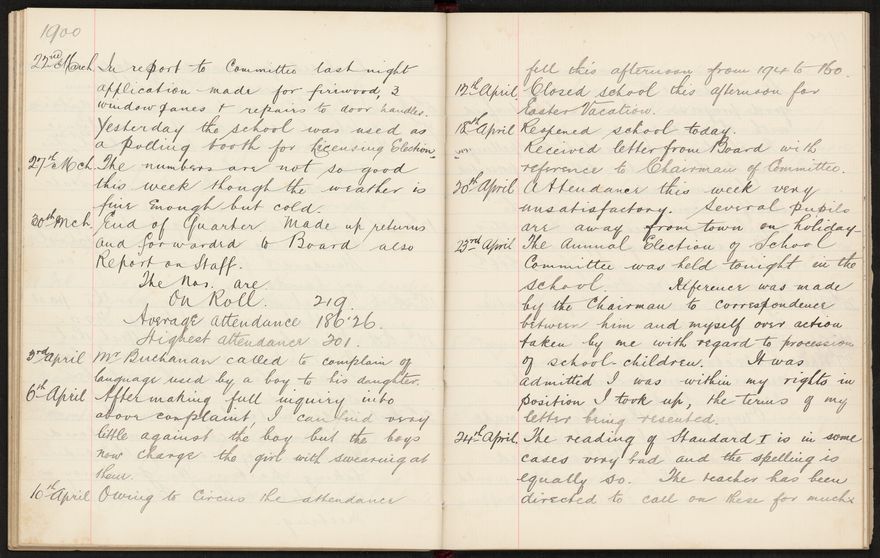 1900
22nd March In report to Committee last night
application made for firewood, 3
window panes & repairs to door handles.
Yesterday the school was used as
a polling booth for Licensing Election.
27th Mch. The numbers are not so good
this week though the weather is
fine enough but cold.
30th Mch. End of Quarter Made up returns
and forwarded to Board also
Report on Staff.
The Nos. are
On Roll. 219.
Average attendance 186.26.
Highest attendance 201.
3rd April Mr Buchanan called to complain of
language used by a boy to his daughter.
6th April After making full inquiry into
above complaint, I can find very
little against the boy but the boys
now charge the girl with swearing at
them.
10th April Owing to Circus the attendance
fell this afternoon from 194 to 160.
12th April. Closed school this afternoon for
Easter Vacation.
18th April Reopened school today.
Received letter from Board with
reference to Chairman of Committee.
20th April Attendance this week very
unsatisfactory. Several pupils
are away from town on holiday
23rd April The Annual Election of School
Committee was held tonight in the
school. Reference was made
by the Chairman to correspondence
between him and myself over action
taken by me with regard to procession
of school-children. It was
admitted I was within my rights in
position I took up, the terms of my
letter being resented.
24th April. The reading of Standard I is in some
cases very bad and the spelling is
equally so. The teacher has been
directed to call on these for much